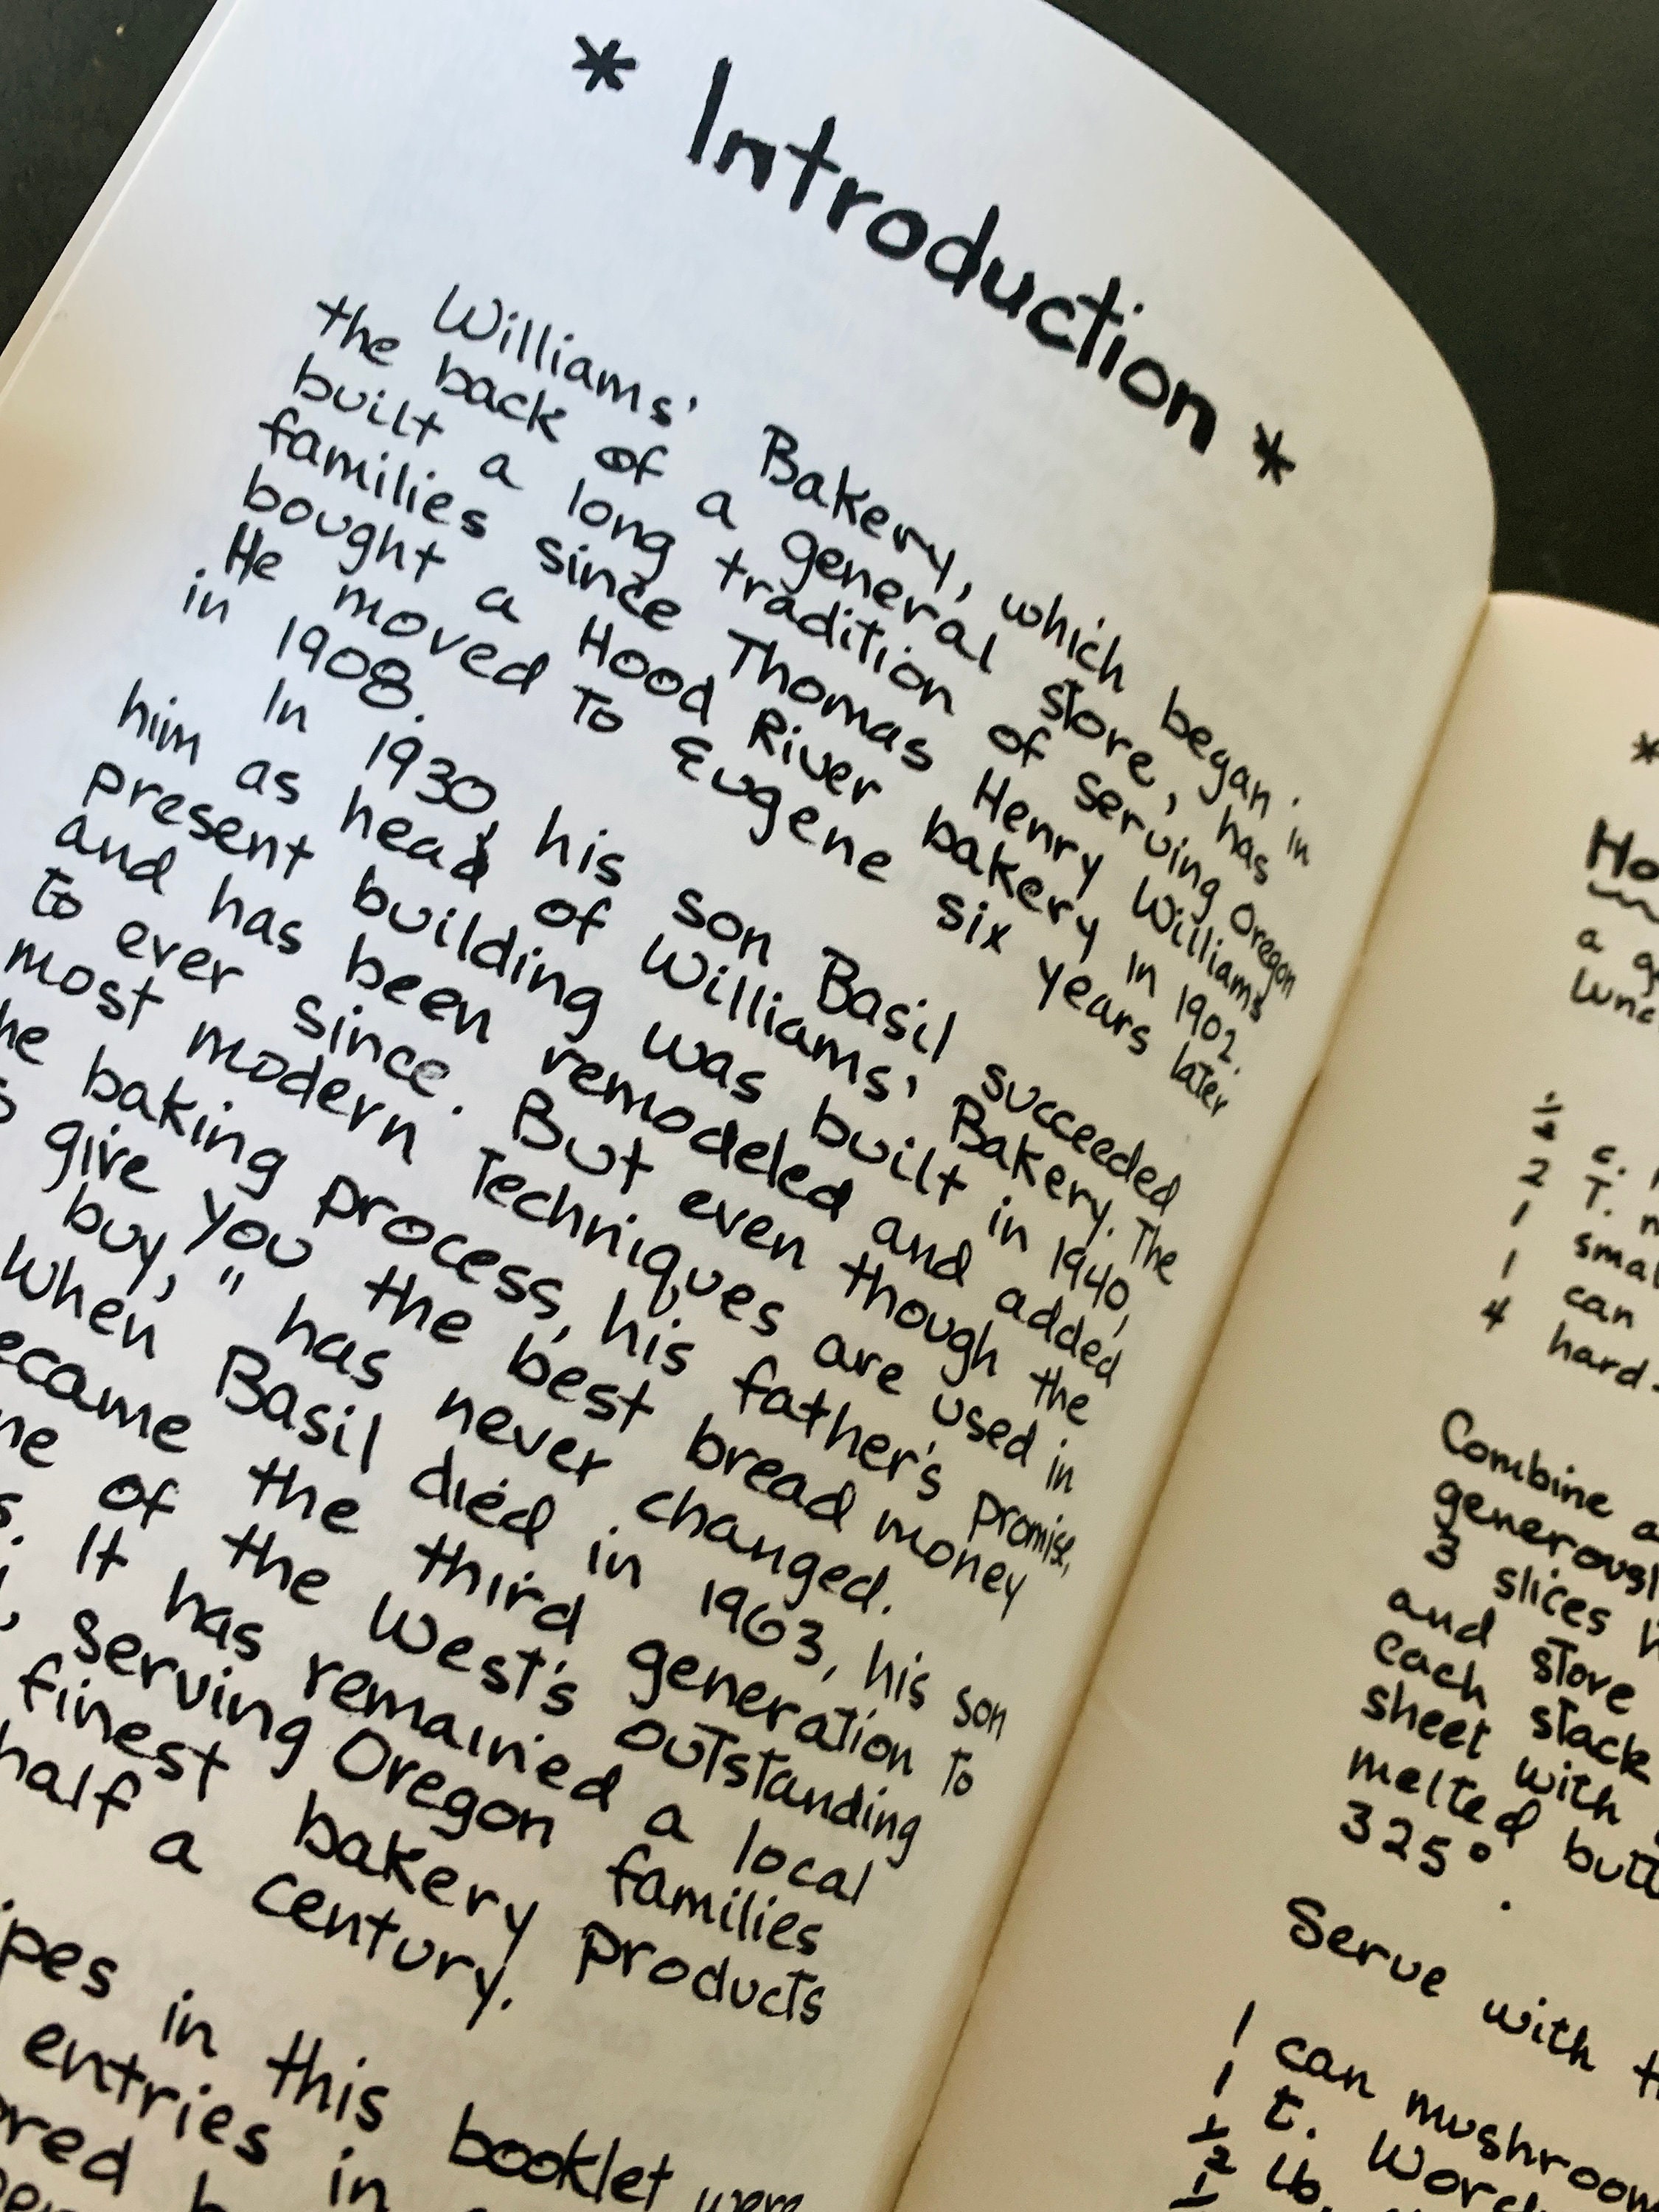 * Introduction *
Williams' Bakery, which began in
the back of a general store, has
built a long tradition of serving Oregon
families since Thomas Henry Williams
bought a Hood River bakery in 1902.
He moved to Eugene six years later
in 1908.
In 1930, his son Basil succeeded
him as head of Williams' Bakery. The
present building was built in 1940,
and has been remodeled and added
to ever since. But even though the
most modern techniques are used in
he baking process, his father's promise,
s give you the best bread money
buy," has never changed.
When Basil died in 1963, his son
ecame the third generation to
ne of the West's outstanding
s. It has remained a local
, serving Oregon families
finest bakery products
half a century.
ipes in this booklet were
entries in
ored b
*
Ho
a g
lunc
1/2 c.
2 T. m
1 smal
1 can
4 hard-
Combine a
generousl
3 slices h
and stove
each stack
sheet with
melted butt
325°.
Serve with th
1 can mushroom
1 t. Worc
1/2 lb.